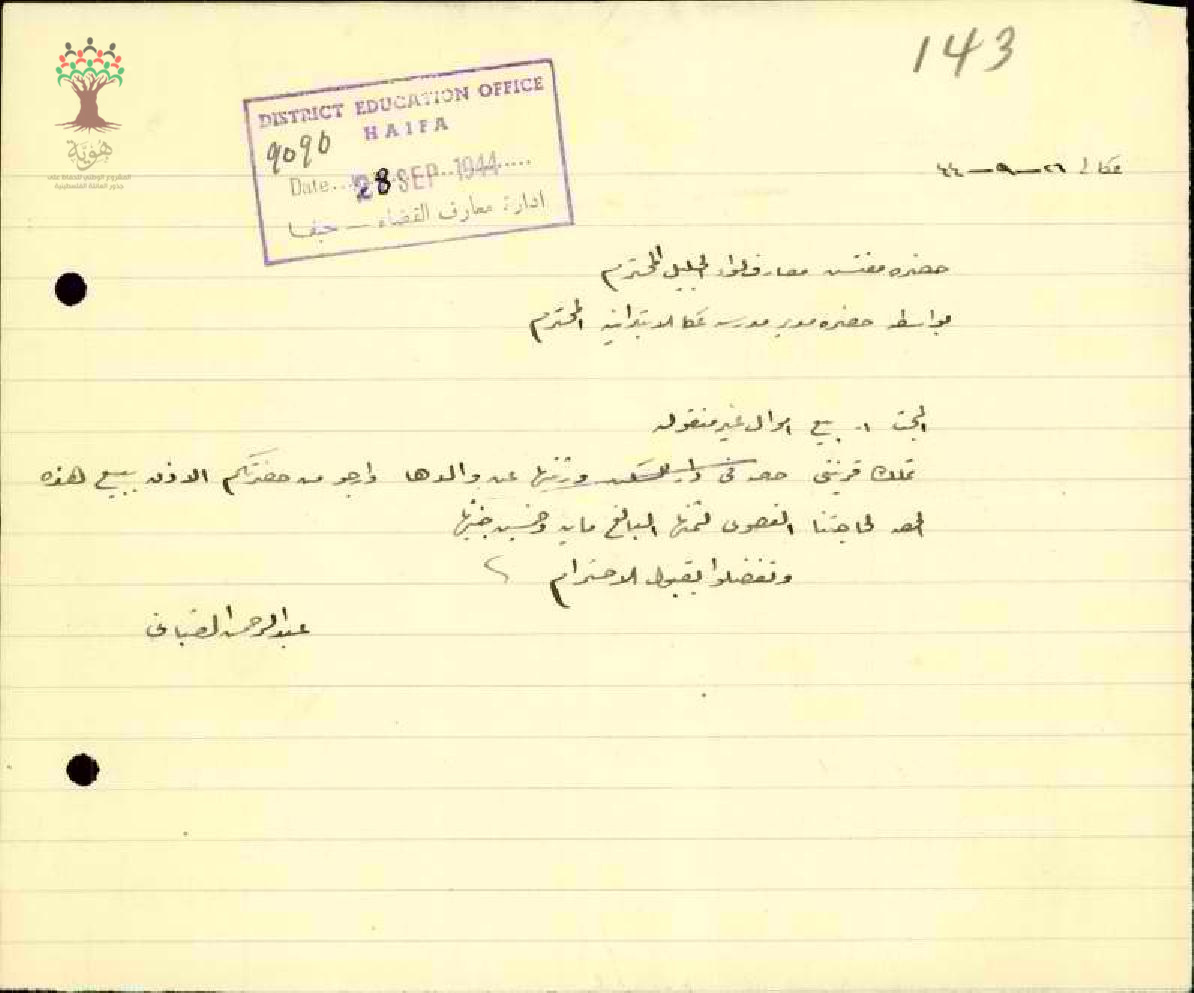 143
هوية
المشروع الوطني للحفاظ على
جذور العائلة الفلسطينية
DISTRICT EDUCATION OFFICE
HAIFA
9090
Date... 28 SEP 1944 .....
ادارة معارف القضاء — حيفا
عكا في ٢٦-٩-٤٤
حضرة مفتش معارف لواء الجليل المحترم
بواسطة حضرة مدير مدرسة عكا الابتدائية المحترم
البحث :- بيع اموال غير منقولة
تملك قرينتي حصة في دار للسكن ورثتها عن والدها وارجو من حضرتكم الاذن ببيع هذه
الحصة لحاجتنا القصوى لثمنها البالغ ماية وخمسين جنيها
وتفضلوا بقبول الاحترام
عبد الرحمن